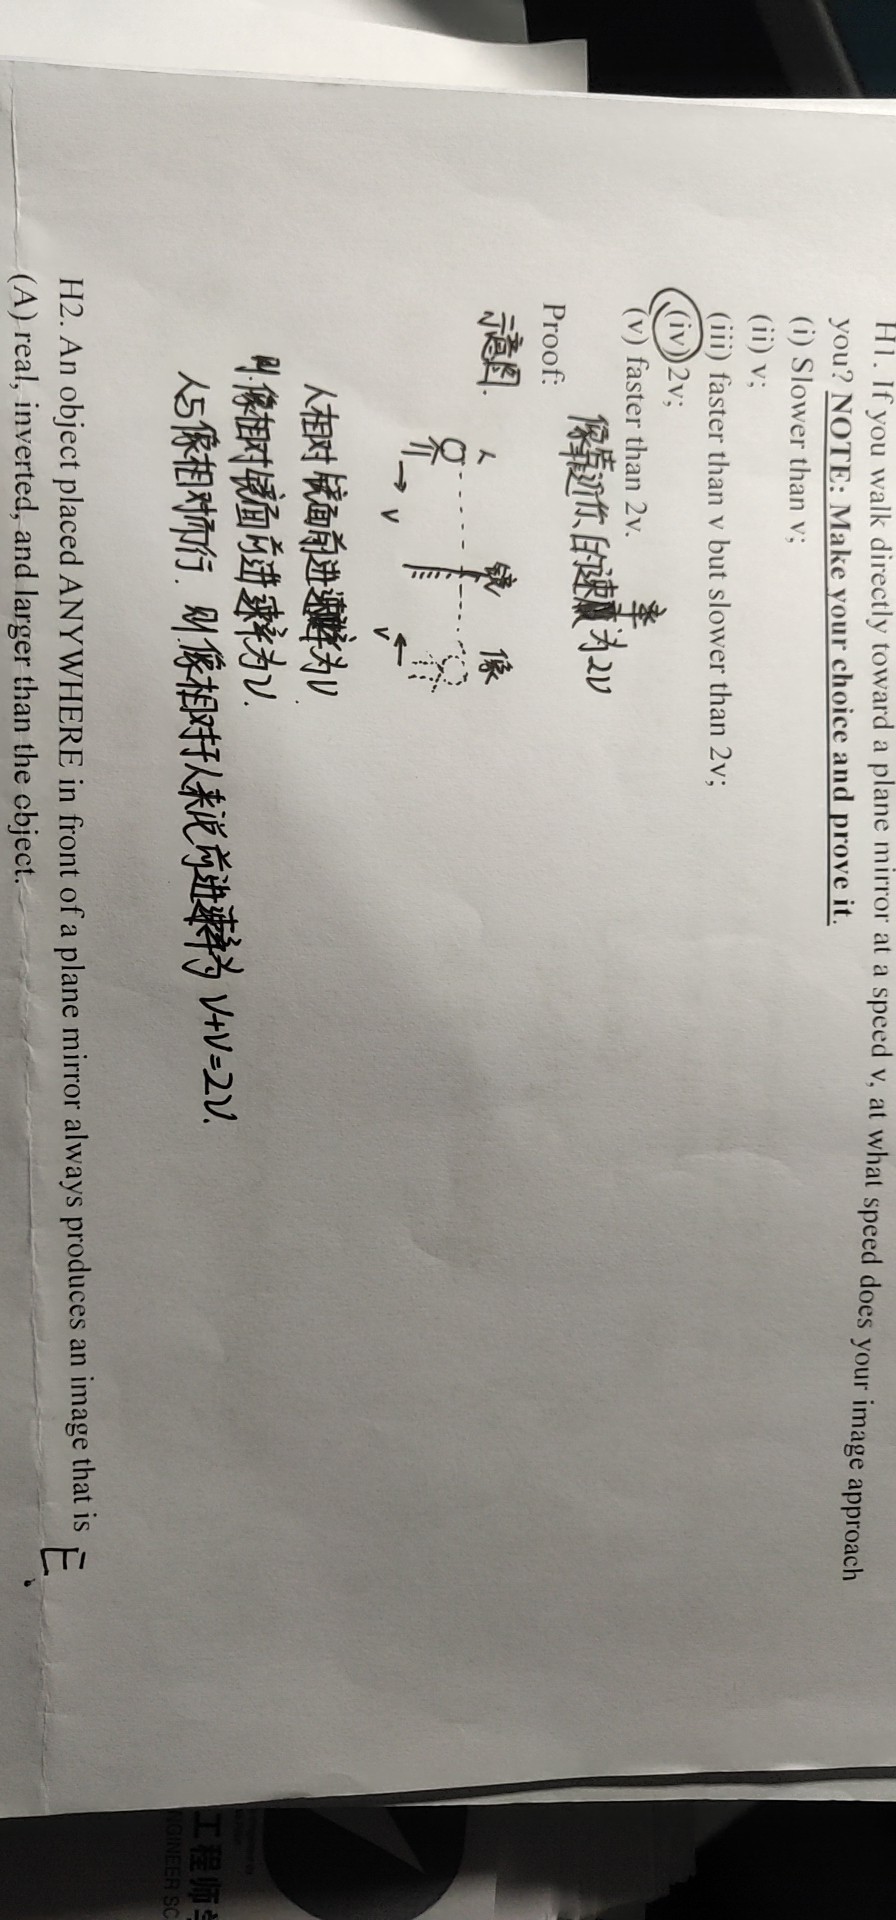 H1. If you walk directly toward a plane mirror at a speed v, at what speed does your image approach
you? NOTE: Make your choice and prove it.
(i) Slower than v;
(ii) v;
(iii) faster than v but slower than 2v;
(iv) 2v;
(v) faster than 2v.
率
像靠近你的速为2v
Proof:
示意图.
人 镜 像
v v
人相对镜面前进速率为v
则.像相对镜面前进速率为v.
人与像相对而行. 则.像相对于人来说前进速率为 v+v=2v.
H2. An object placed ANYWHERE in front of a plane mirror always produces an image that is E.
(A) real, inverted, and larger than the object.
工程师学
NGINEER SC